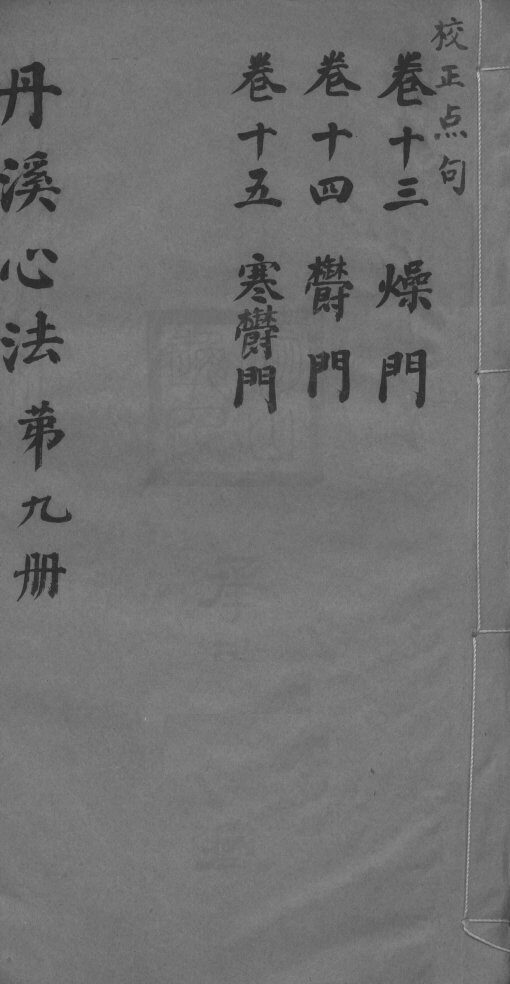 校正点句
卷十三 燥門
卷十四 欝門
卷十五 寒欝門
丹溪心法 苐九册